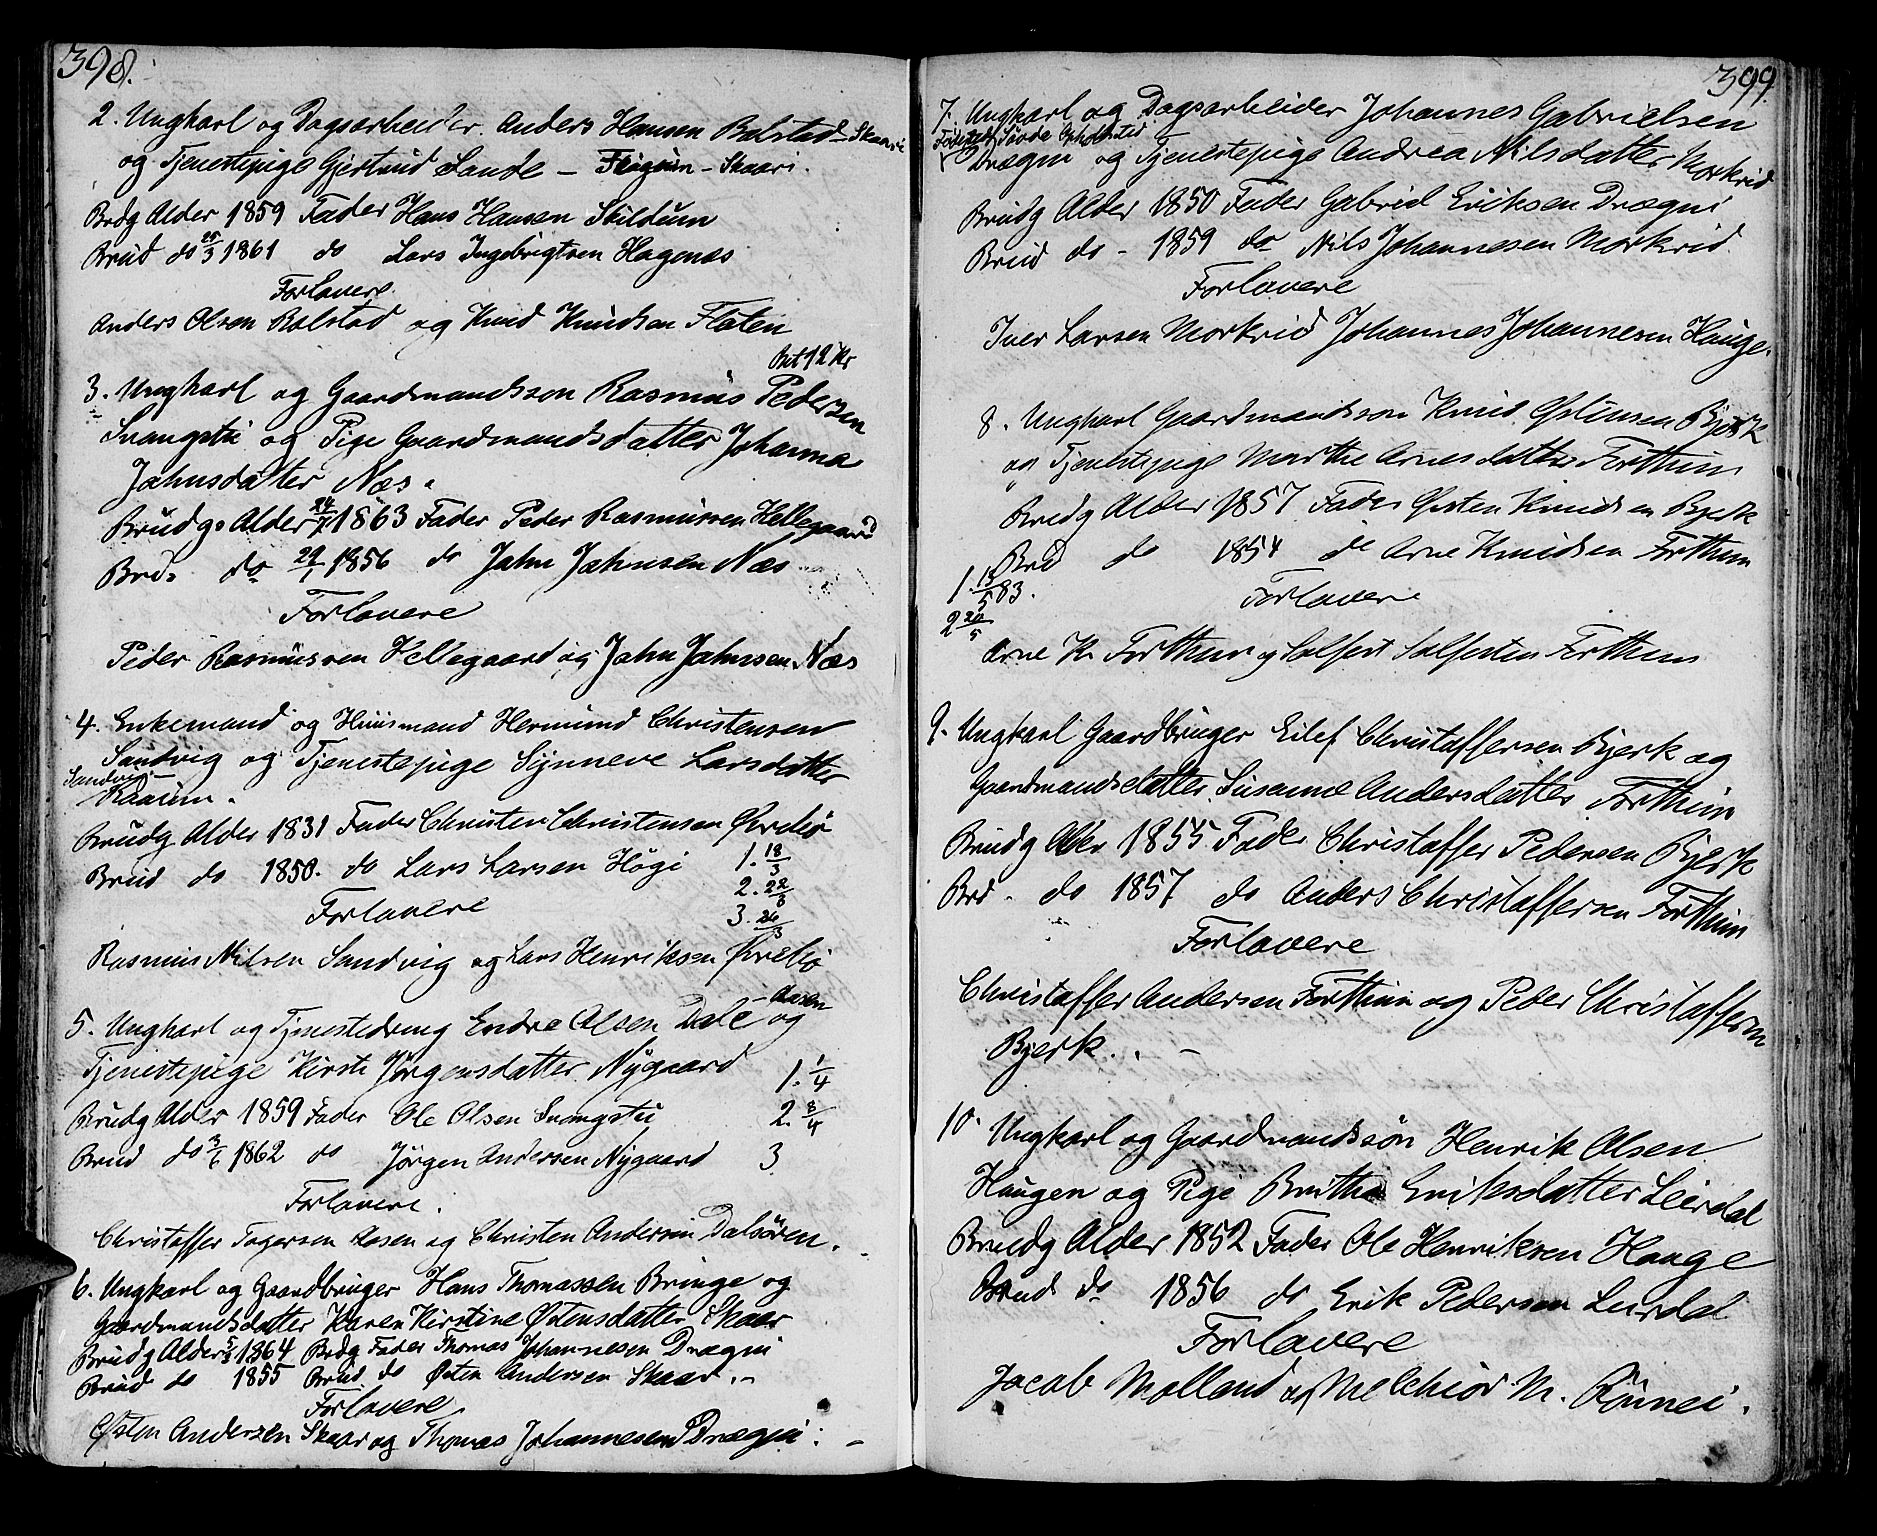 398.
2. Ungkarl og Dagsarbeider Anders Hansen Bolstad - Skaari
og Tjenestepige Gjertrud Sande - - Skaari.
Brdg Alder 1859 Fader Hans Hansen Skildum
Brud do 25/3 1861 do Lars Ingebrigtsen Hagenæs
Forlovere.
Anders Olsen Bolstad og Knud Knudsen Flaten
Bet 12 Kr
3. Ungkarl og Gaardmandssøn Rasmus Pedersen
Svangstu og Pige Gaardmandsdatter Johanna
Jahnsdatter Næs.
Brudgs Alder 24/7 1863 Fader Peder Rasmussen Hellegaard
Brd. do 29/1 1856 do Jahn Jahnsen Næs
Forlovere
Peder Rasmussen Hellegaard og Jahn Jahnsen Næs
4. Enkemand og Huusmand Hermund Christensen
Sandvig og Tjenestepige Synneve Larsdatter
Sandvig -
Raaum.
Brudg Alder 1831 Fader Christen Christensen Øvrebø
Brud do 1850. do Lars Larsen Høgi 1. 18/3
2. 22/3
Forlovere 3. 26/3
Rasmus Nilsen Sandvig og Lars Henriksen Øvrebø
- Aasen
5. Ungkarl og Tjenestedreng Endre Olsen Dale og
Tjenestepige Kirsti Jørgensdatter Nygaard 1. 1/4
Brudg Alder 1859 Fader Ole Olsen Svangstu 2. 8/4
Brud do 3/6 1862 do Jørgen Andersen Nygaard 3
Forlovere.
Christaffer Togersen Aasen og Christen Andersen Dalsøren.
6. Ungkarl og Gaardbruger Hans Thomassen Bringe og
Gaardmandsdatter Karen Kirstine Østensdatter Skaar
Brudg Alder 5/3 1864 Brdg Fader Thomas Johannesen Drægni
Brud do 1855 Brud do Østen Andersen Skaar. -
Forlovere
Østen Andersen Skaar og Thomas Johannesen Drægni. -
399.
7. Ungkarl og Dagsarbeider Johannes Gabrielsen
Drægni og Tjenestepige Andrea Nilsdatter Morkrid
Brudg Alder 1850 Fader Gabriel Eriksen Drægni
Brud do - 1859 do Nils Johannesen Morkrid
Forlovere
Iver Larsen Morkrid Johannes Johannesen Hauge.
8. Ungkarl Gaardmandssøn Knud Østensen Bjerk
og Tjenestepige Marthe Arnesdatter Forthun
Brudg Alder 1857 Fader Østen Knudsen Bjerk
Brd do 1854 do Arne Knudsen Forthun
1. 13/5 83. Forlovere
2 20/5
Arne K. Forthun og Salfest Salfesten Forthun
9. Ungkarl Gaardbruger Eilef Christaffersen Bjerk og
Gaardmandsdatter Susanne Andersdatter Forthun
Brudg Alder 1855 Fader Christaffer Pedersen Bjerk
Brd. do 1857 do Anders Christaffersen Forthun
Forlovere
Christaffer Andersen Forthun og Peder Christaffersen
Bjerk. . -
10. Ungkarl og Gaardmandssøn Henrik Olsen
Haugen og Pige Brithe Eriksdatter Leirdal
Brudg Alder 1852 Fader Ole Henriksen Hauge
Brud do 1856 do Erik Pedersen Leirdal
Forlovere
Jacob Molland og Melchior M. Rønnei.